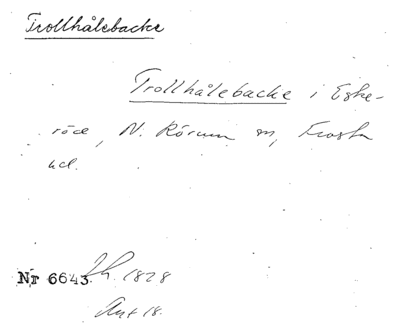 Trollhålebacke
Trollhålebacke i Eske-
röd, N. Rörum sn, Frosta
hd.
Nr 6643. 1828
Ant 18.